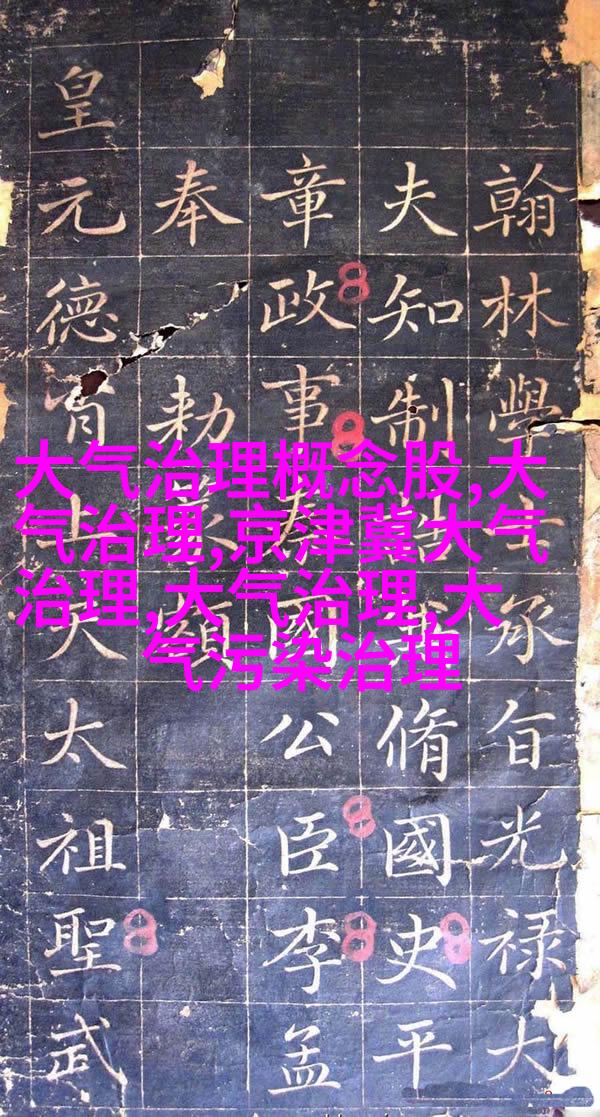 大气治理概念股,大
气治理,京津冀大气
治理,大气治理,大
气污染治理
翰林學士承旨光禄大
夫知制脩國史平
章政事公臣李孟
奉勅
皇元德天太祖聖武